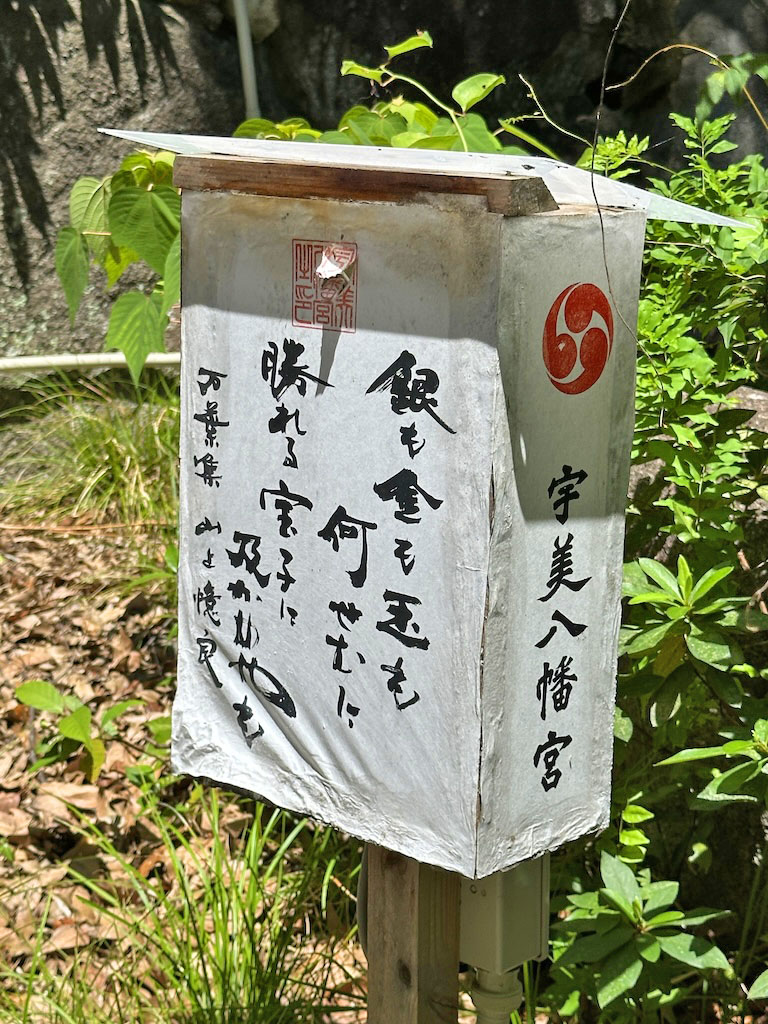 銀も金も玉も
何せむに
勝れる宝子に
及かめやも
万葉集 山上憶良
宇美八幡宮